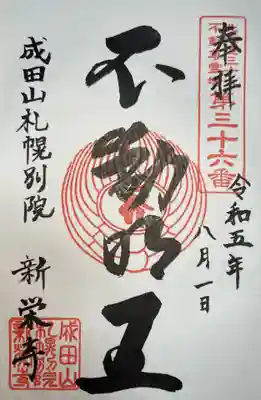 奉拝
第三十六番
令和五年
八月一日
不動明王
成田山札幌別院
新栄寺
成田山
札幌別院
新栄寺